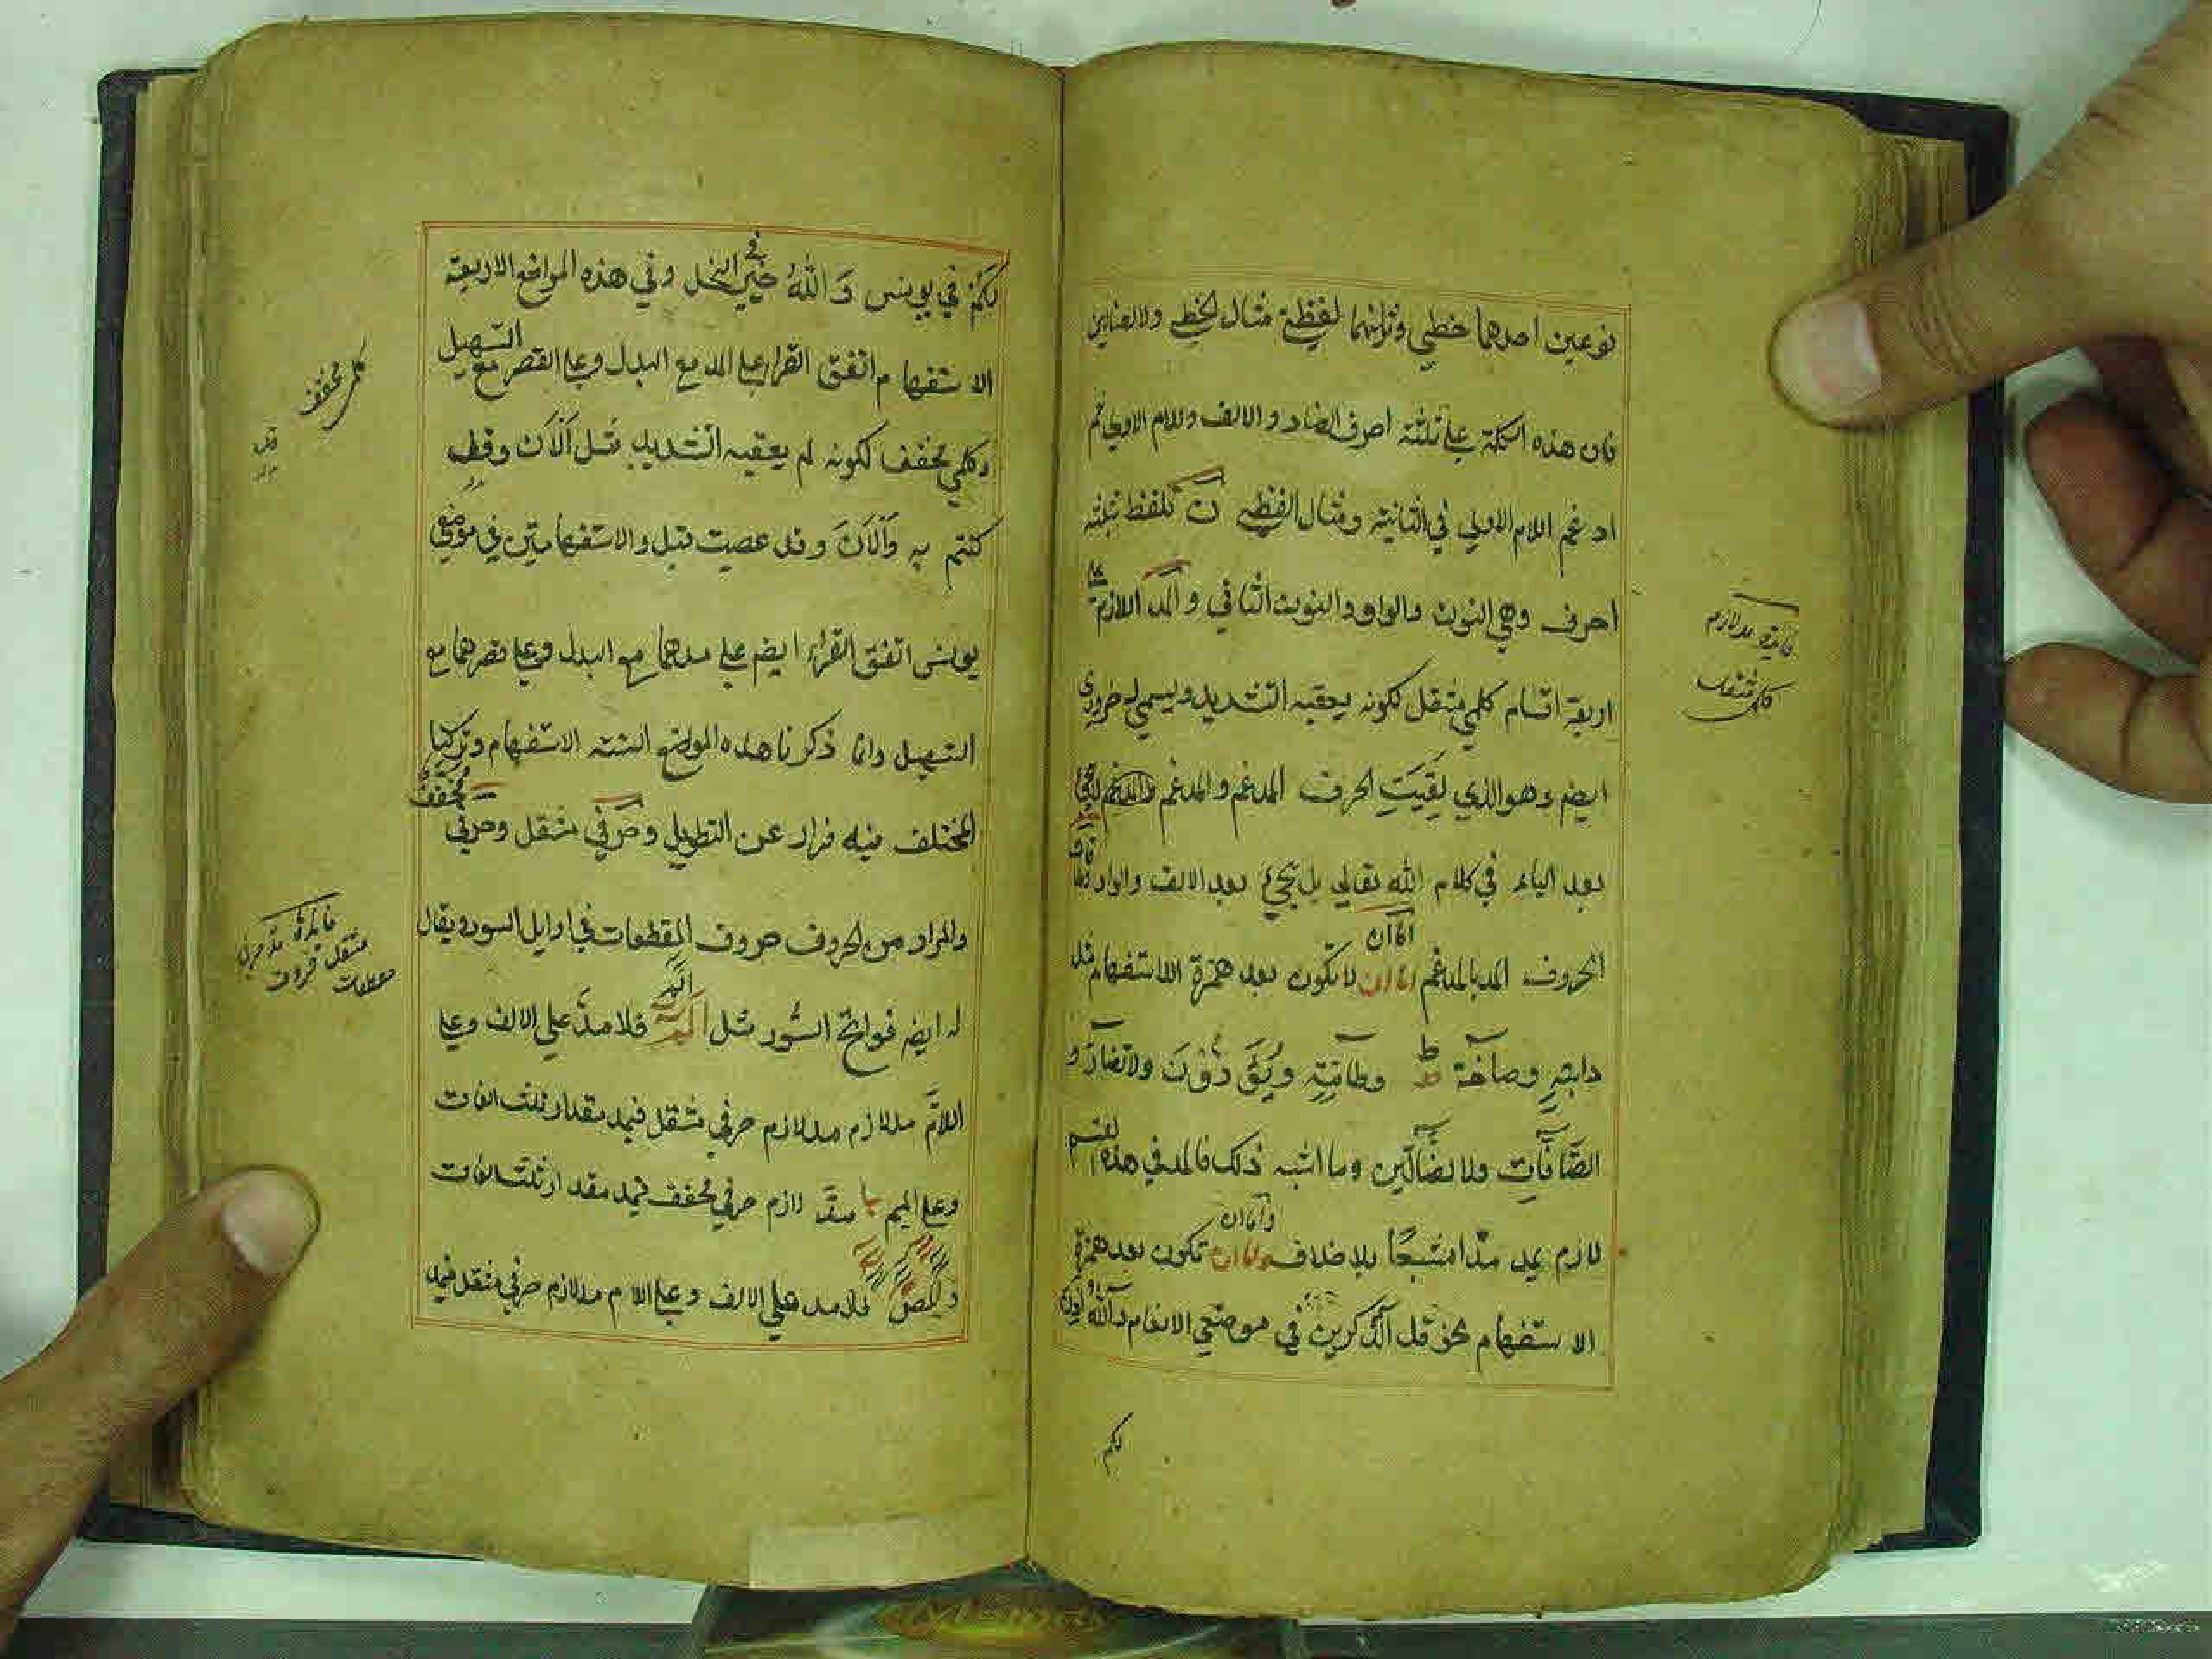 نوعين احدهما خطي وثانيهما لفظي مثال الخطي ولا الضالين
فان هذه الكلمة على ثلثة احرف الضاد والالف واللام الاولى ثم
ادغم اللام الاولى في الثانية ومثال اللفظي ن تلفظ ثلثة
احرف وهي النون والواو والنون الثاني و المد اللازم على
اربعة اقسام كلمي مثقل لكونه يعقبه التشديد ويسمى له ضروري
ايضم وهو الذي بقيت الحرف المدغم و المدغم والمدغم
بعد الياء في كلام الله تعالى بل تجيء بعد الالف والواو
الحروف المد بالمدغم اما ان لا تكون بعد همزة الاستفهام مثل
اما ان
دابة وصاخة ط وطاتية و دون ولا تضار و
الصافات ولا الضالين وما اشبه ذلك فالمد في هذه القسم
لازم يمد مدا مشبعا بلا خلاف واما ان تكون بعد همزة
واما ان
الاستفهام نحو قل آلذكرين في موضعي الانعام و آلله اذن
لكم
فائدة مد لازم
كلمي مثقل
لكم في يونس و آلله خير في النمل وفي هذه المواضع الاربعة
الاستفهام اتفق القراء على المد مع البدل وعلى القصر مع التسهيل
وكلمي مخفف لكونه لم يعقبه التشديد مثل آلآن وقد
كنتم به وآلآن وقد عصيت قبل والاستفهامين في موضعي
يونس اتفق القراء ايضم على مدهما مع البدل وعلى قصرهما مع
التسهيل وانما ذكرنا هذه المواضع الستة الاستفهام وتركنا
المختلف فيه فرار عن التطويل وحرفي مثقل وحرفي مخفف
والمراد من الحروف حروف المقطعات في اوايل السور ويقال
له ايضم فواتح السور مثل الم فلا مد على الالف وعلى
اللام مد لازم مد لازم حرفي مثقل فيمد مقدار ثلث الفات
وعلى الميم مد لازم حرفي مخفف فيمد مقدار ثلث الفات
و المص فلا مد على الالف وعلى اللام مد لازم حرفي مثقل فيمد
كلمي مخفف
فائدة مد حرفي
مثقل حروف
مقطعات